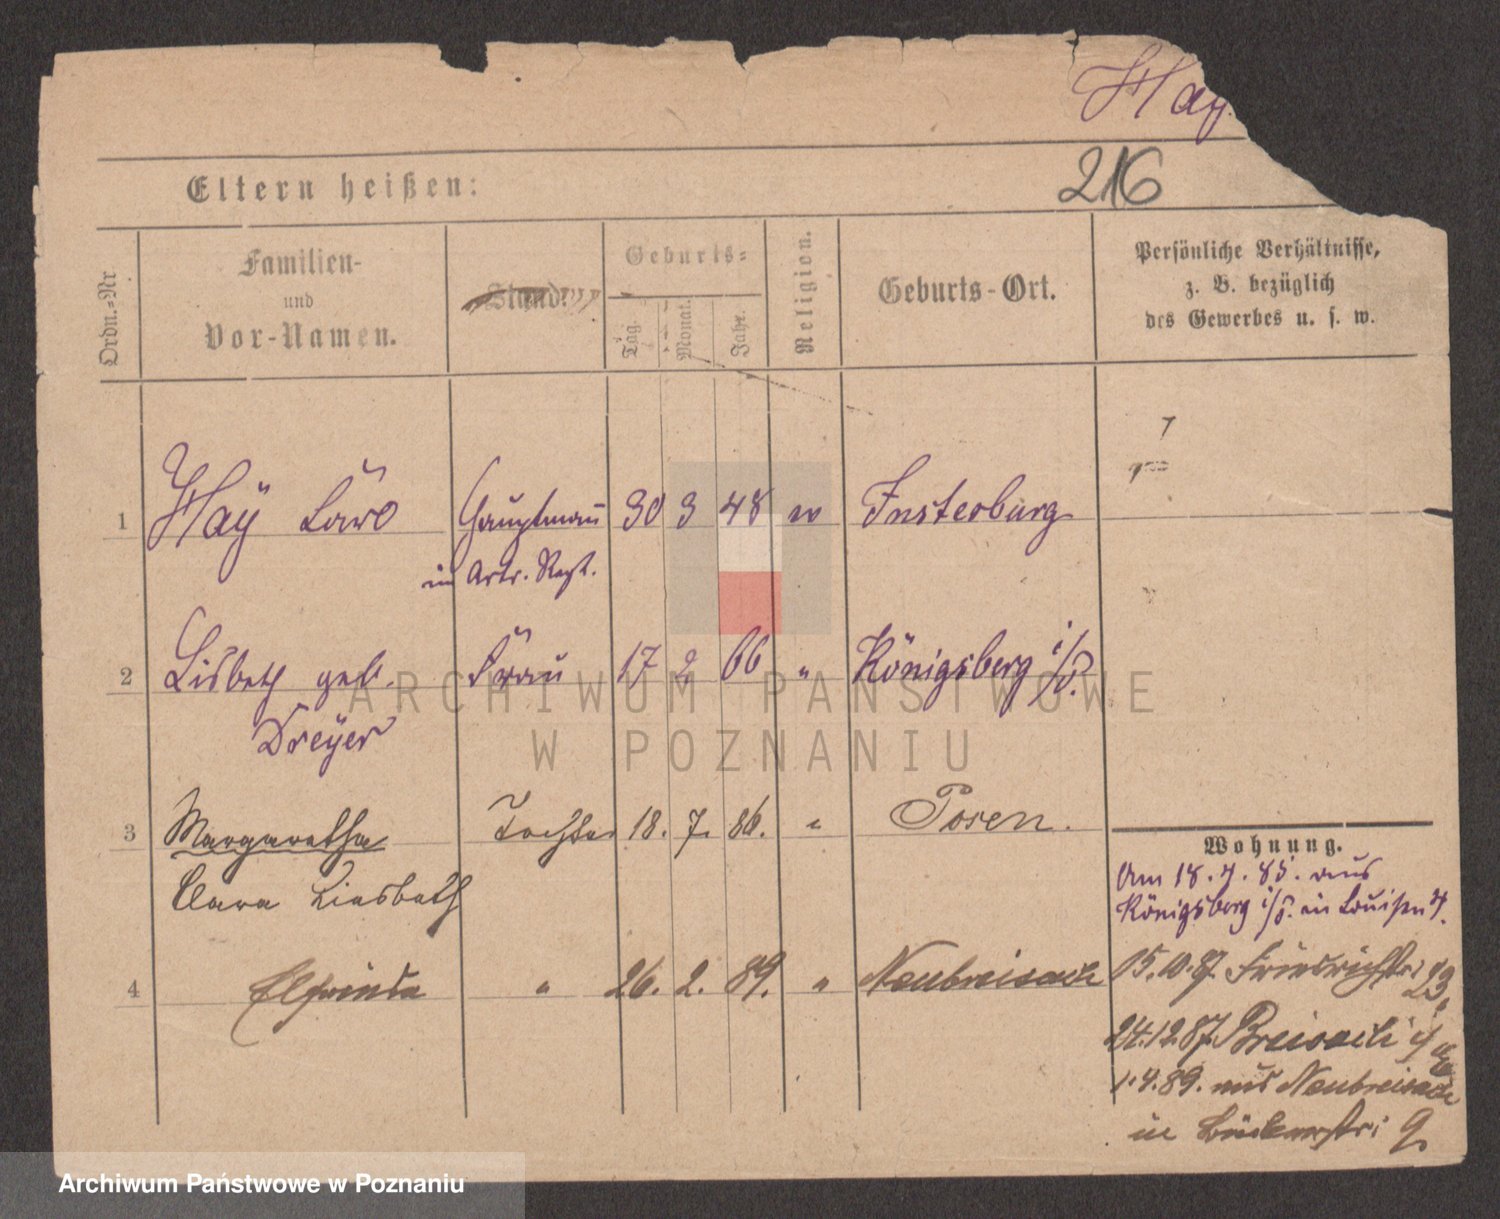 Hay
216
Eltern heißen:
Ordn.-Nr
Familien-
und
Vor-Namen.
Stand.
Geburts-
Tag.
Monat.
Jahr.
Religion.
Geburts-Ort.
Persönliche Verhältnisse,
z. B. bezüglich
des Gewerbes u. s. w.
1 Haÿ Hauptmann 30 3 48 ev Insterburg
in Artr. Regt.
2 Lisbeth geb. Frau 17 2 66 " Königsberg i/P.
Dreÿer
3 Margaretha Tochter 18. 7. 86. " Posen.
Clara Liesbeth
4 Elfrieda " 26. 2. 89. " Neubreisach
Wohnung.
Am 18. 4. 85. aus
Königsberg i/P. in Louisen 4.
15.10.87. Friedrichstr. 23.
24.12.87. Breisach i/E
1.4.89. aus Neubreisach
in 9
ARCHIWUM PAŃSTWOWE
W POZNANIU
Archiwum Państwowe w Poznaniu